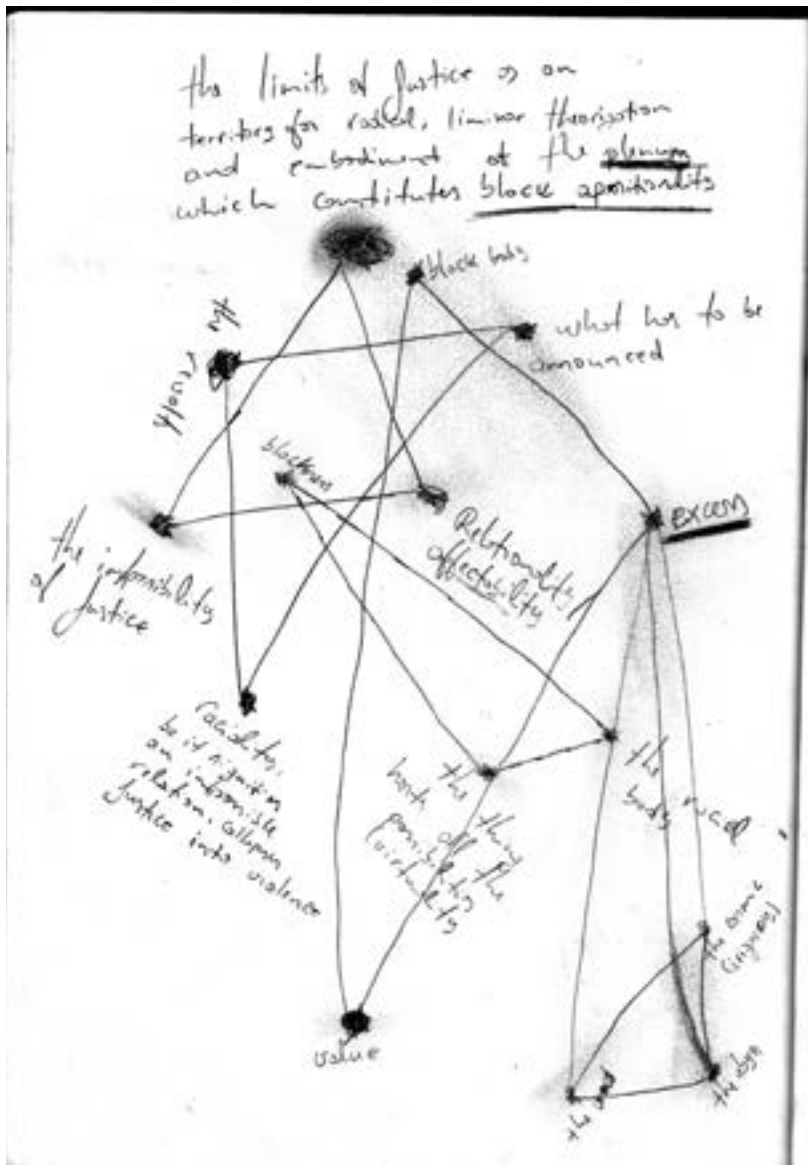 the limits of Justice is an
territory for racial, liminar theorisation
and embodiment of the plenum
which constitutes black apositionality
black body
what has to be
announced
the result
blackness
excess
Relationality
affectability
the impossibility
of Justice
raciality,
be it signifies
an impossible
relation, collapses
Justice into violence
the thing
hosts all the
possibility
virtuality
the racial
body
the
value
the
the